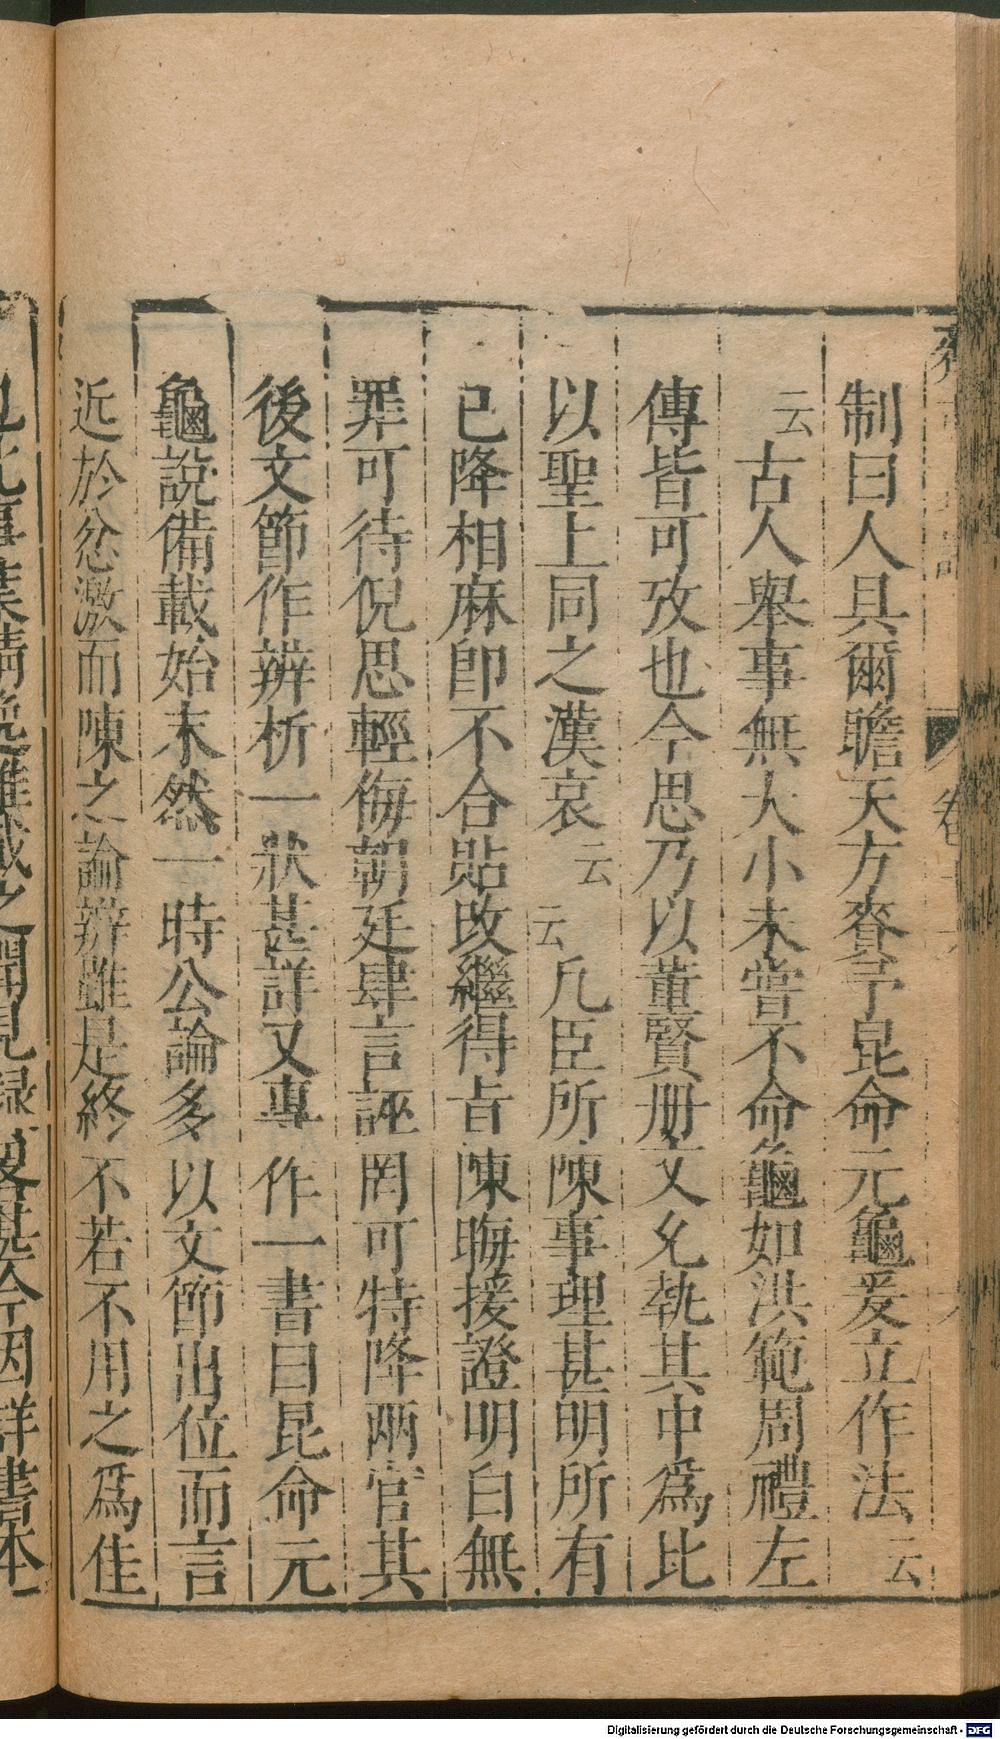 制曰人具爾瞻天方賚予昆命元龜爰立作法云
云古人舉事無大小未嘗不命龜如洪範周禮左
傳皆可攷也今思乃以董賢册文允執其中爲比
以聖上同之漢哀云云凡臣所陳事理甚明所有
已降相麻卽不合貼改繼得旨陳晦援證明白無
罪可待倪思輕侮朝廷肆言誣罔可特降兩官其
後文節作辨析一狀甚詳又專作一書曰昆命元
龜說備載始末然一時公論多以文節出位而言
近於忿激而陳之論辨雖是終不若不用之爲佳
Digitalisierung gefördert durch die Deutsche Forschungsgemeinschaft - DFG